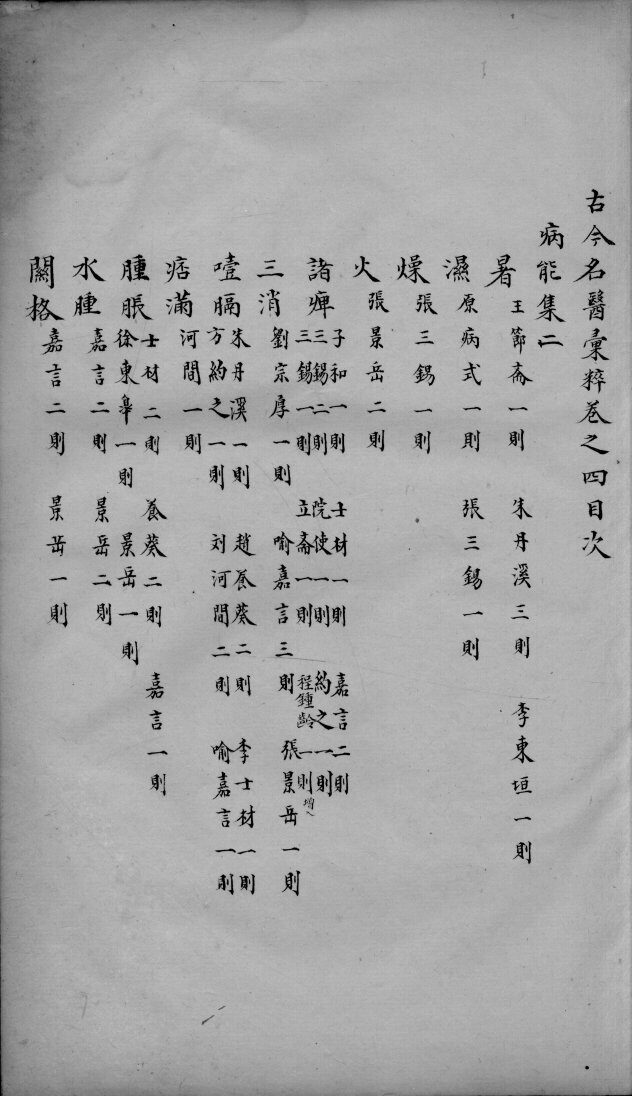 古今名醫彙粹卷之四目次
病能集二
暑 王節齋一則 朱丹溪三則 李東垣一則
濕 原病式一則 張三錫一則
燥 張三錫一則
火 張景岳二則
諸痺 子和一則 士材一則 嘉言二則
三錫二則 院使一則 約之一則
三錫一則 立齋一則 程鍾齡一則增入
三消 劉宗厚一則 喻嘉言三則 張景岳一則
噎膈 朱丹溪一則 趙養葵二則 李士材一則
方約之一則 刘河間二則 喻嘉言一則
痞滿 河間一則
腫脹 士材二則 養葵二則 嘉言一則
徐東皋一則 景岳一則
水腫 嘉言二則 景岳二則
關格 嘉言二則 景岳一則